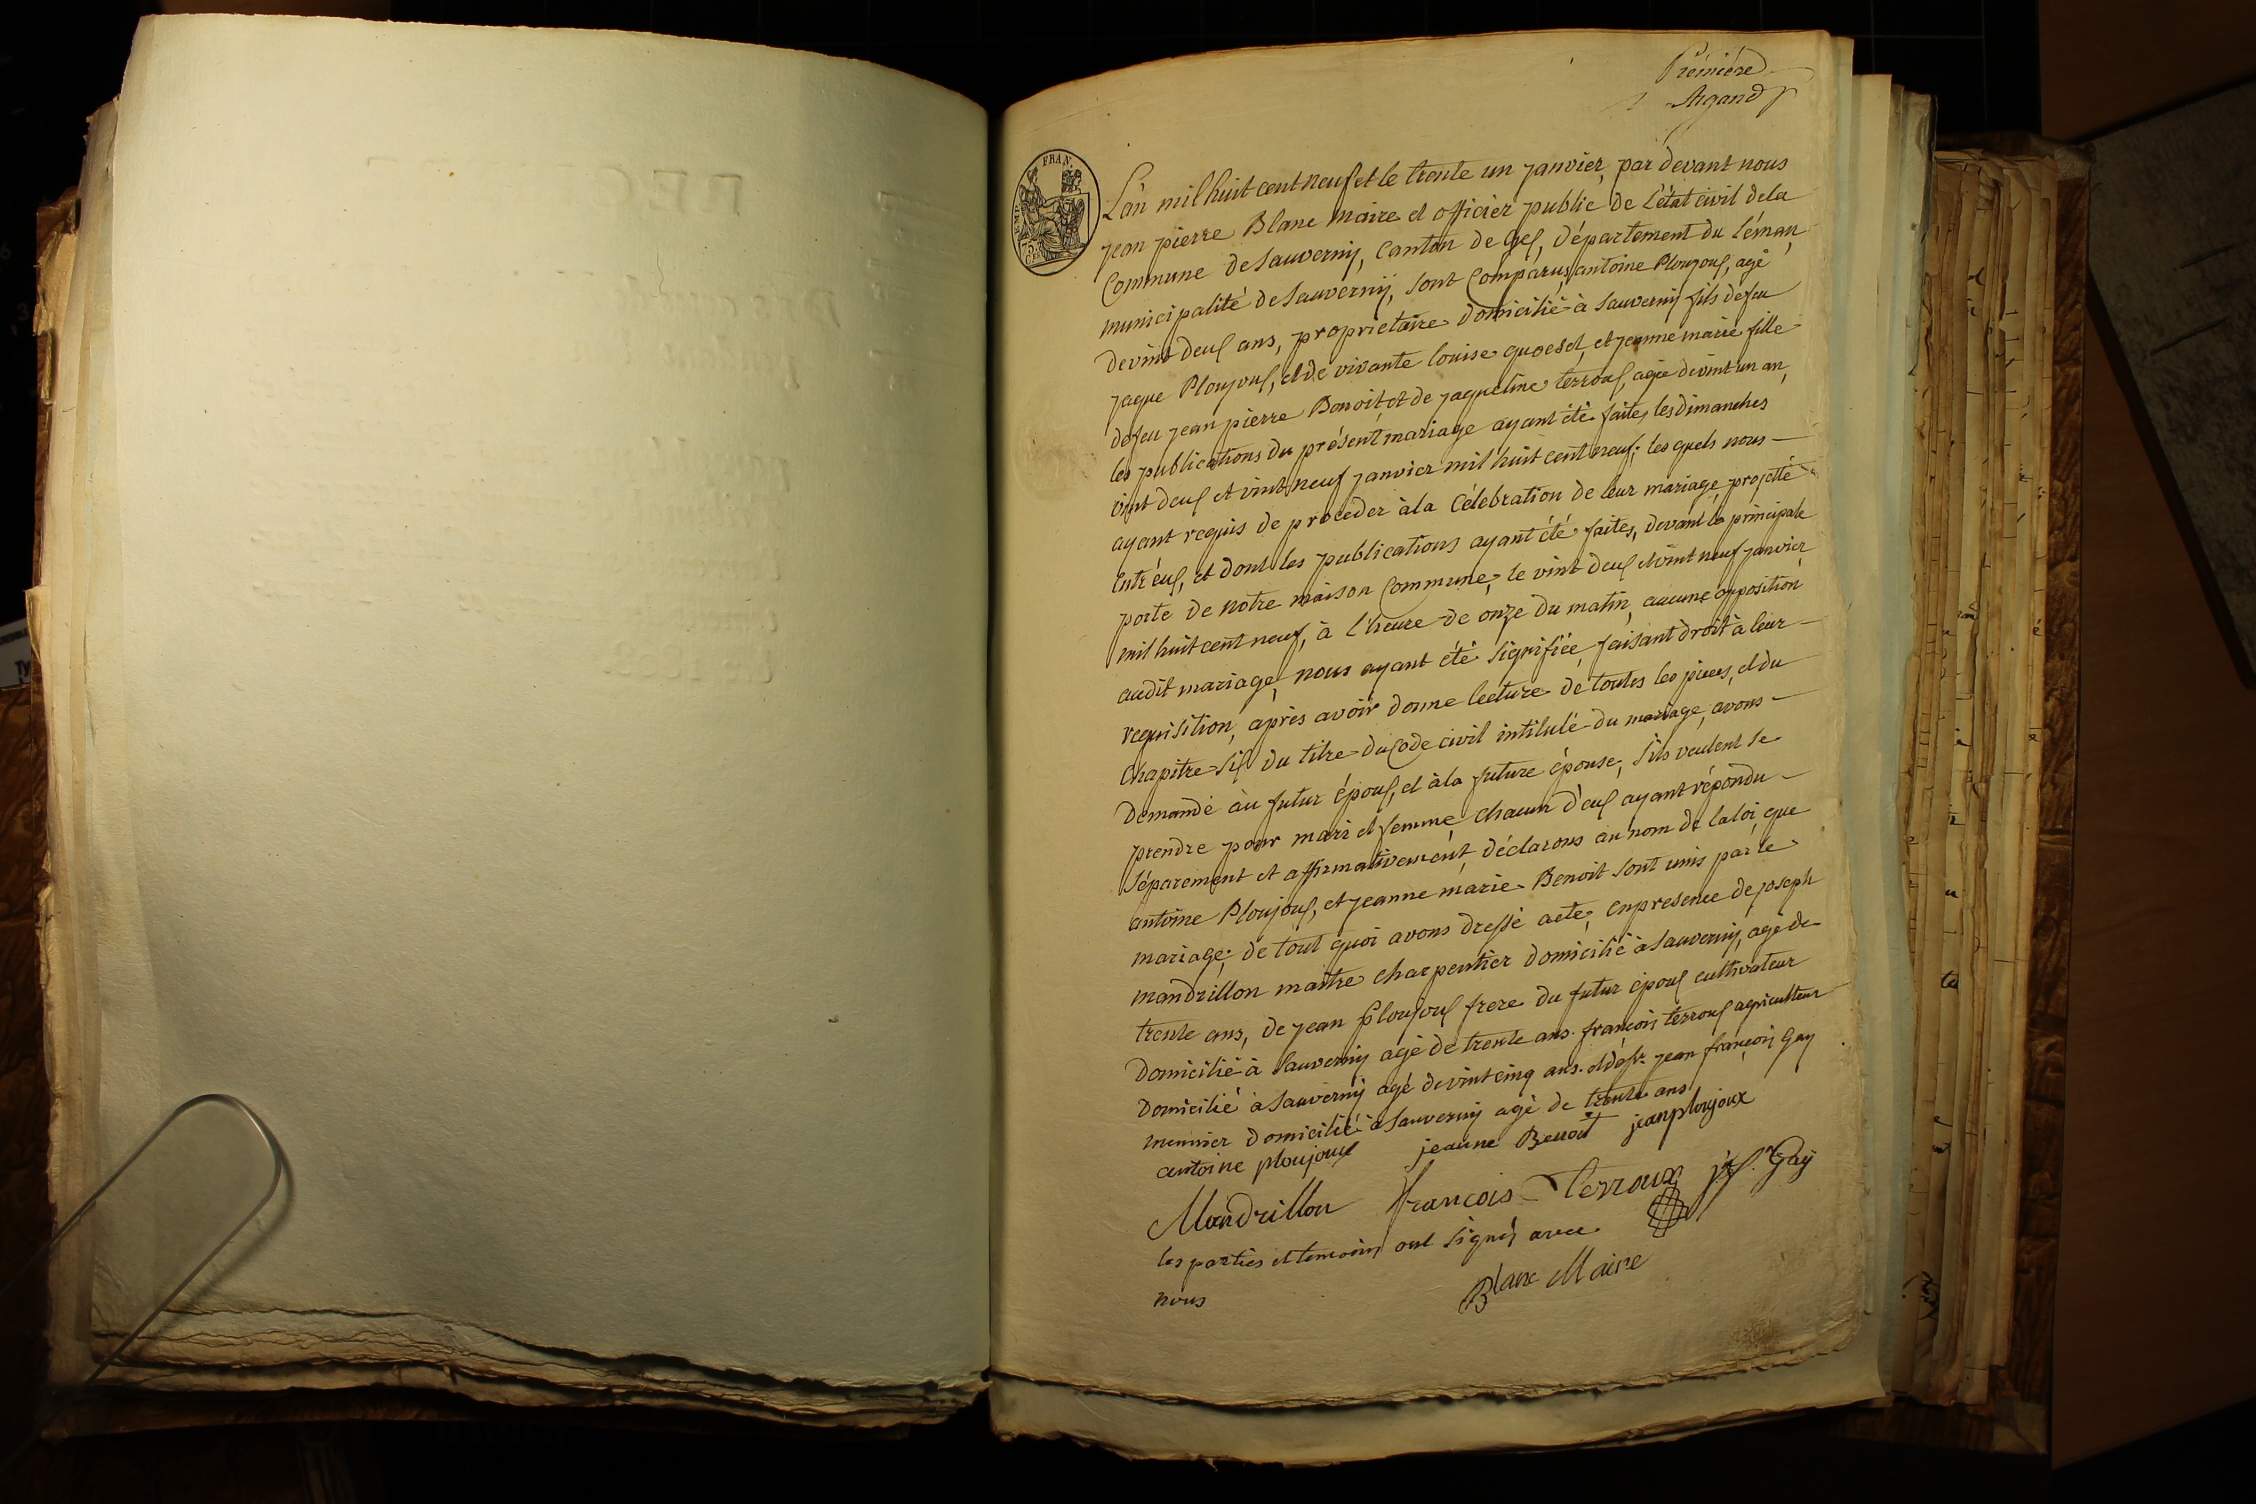 Première
Argand
FRAN.
EMP.
75
CES
L'an mil huit cent neuf et le trente un janvier, par devant nous
jean pierre Blanc maire et officier public de l'état civil de la
Commune de Sauverny, Canton de Gex, département du Léman,
municipalité de Sauverny, sont Comparus, antoine Ploujoux, agé
de vint deux ans, proprietaire domicilié à Sauverny fils de feu
jaque Ploujoux, et de vivante louise et jeanne marie fille
de feu jean pierre Benoit, et de jaqueline terroux, agée de vint un an,
les publications du présent mariage ayant été faites les dimanches
vint deux et vint neuf janvier mil huit cent neuf; les quels nous
ayant requis de proceder à la Célébration de leur mariage projetté
entr'eux, et dont les publications ayant été faites, devant la principale
porte de notre maison Commune, le vint deux et vint neuf janvier
mil huit cent neuf, à l'heure de onze du matin, aucune opposition
audit mariage, nous ayant été signifiée, faisant droit à leur
requisition, après avoir donné lecture de toutes les pieces, et du
Chapitre six du titre du Code civil intitulé du mariage, avons
demandé au futur époux, et à la future épouse, s'ils veulent se
prendre pour mari et femme, chacun d'eux ayant répondu
séparement et affirmativement, déclarons au nom de la loi, que
antoine Ploujoux, et jeanne marie Benoit sont unis par le
mariage, de tout quoi avons dressé acte, en presence de joseph
mandrillon maitre charpentier domicilié à Sauverny, agé de
trente ans, de jean Ploujoux frere du futur époux cultivateur
domicilié à Sauverny agé de trente ans. françois terroux agriculteur
domicilié à Sauverny agé de vint cinq ans. et de jean françois Gay
meunier domicilié à Sauverny agé de trente ans
antoine ploujoux jeanne Benoit jean ploujoux
Mandrillon francois Terroux jf. Gay
les parties et temoins ont signés avec
nous
Blanc Maire